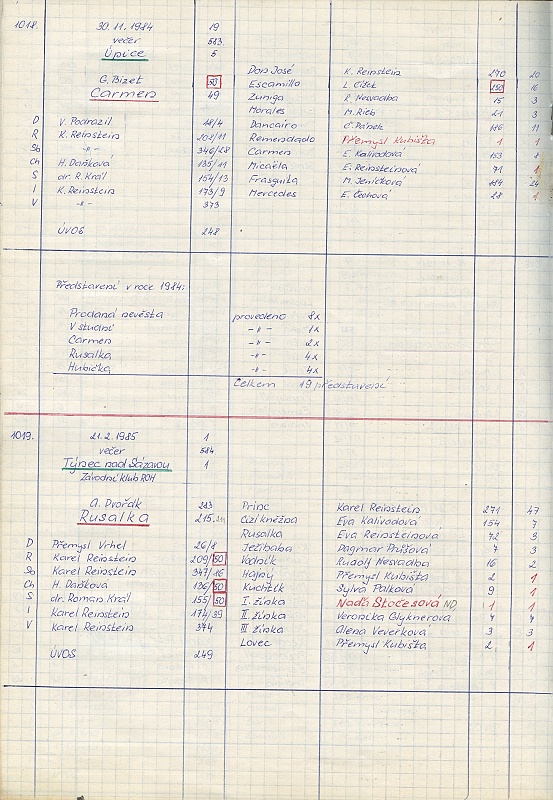 1018. 30.11.1984 19
večer 583
Úpice 5
Don José K. Reinstein 270 20
G. Bizet 50 Escamillo L. Čížek 150 16
Carmen 49 Zuniga R. Nesvadba 15 3
Morales M. Rieb 21 3
D V. Podrazil 18/4 Dancairo Č. Pátek 116 11
R K. Reinstein 208/11 Remendado Přemysl Kubišta 1 1
Sb -"- 346/28 Carmen E. Kalivodová 153 8
Ch H. Daňková 135/11 Micaëla E. Reinsteinová 71 1
S dr. R. Král 154/13 Frasquita M. Jeníčková 184 24
I K. Reinstein 173/9 Mercedes E. Čechová 28 1
V -"- 373
ÚVOS 248
Představení v roce 1984:
Prodaná nevěsta provedeno 8x
V studni -"- 1x
Carmen -"- 2x
Rusalka -"- 4x
Hubička -"- 4x
Celkem 19 představení
1019. 21.2.1985 1
večer 584
Týnec nad Sázavou 1
Závodní klub ROH
A. Dvořák 283 Princ Karel Reinstein 271 47
Rusalka 215. Cizí kněžna Eva Kalivodová 154 7
Rusalka Eva Reinsteinová 72 3
D Přemysl Vrhel 26/8 Ježibaba Dagmar Průšová 7 3
R Karel Reinstein 209/50 Vodník Rudolf Nesvadba 16 2
Sb Karel Reinstein 347/16 Hajný Přemysl Kubišta 2 1
Ch H. Daňková 136/50 Kuchtík Sylva Palková 9 1
S dr. Roman Král 155/50 I. žínka Naďa Štočesová ND 1 1
I Karel Reinstein 174/39 II. žínka Veronika Glyknerová 4 4
V Karel Reinstein 374 III žínka Alena Veverková 3 3
Lovec Přemysl Kubišta 2 1
ÚVOS 249